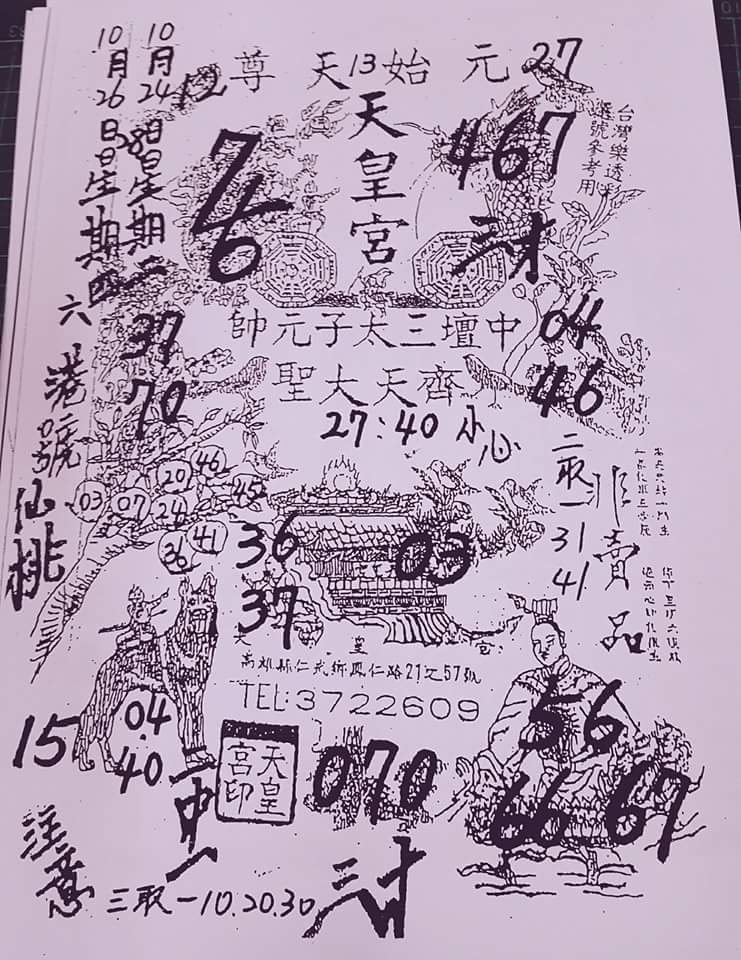 10月24日星期二
10月26日星期四
六港號
仙桃
12
元始天尊
13
27
天皇宮
7
6
467
三才
台灣樂透彩
選號參考用
37
70
中壇三太子元帥
齊天大聖
04
46
27:40 小心
二取一
31
41
非賣品
46
20
45
03
07
24
41
36
36
37
03
高雄縣仁武鄉鳳仁路21之57號
TEL:3722609
15
04
40
天皇宮印
070
56
66
67
注意
三取一10.20.30
三才